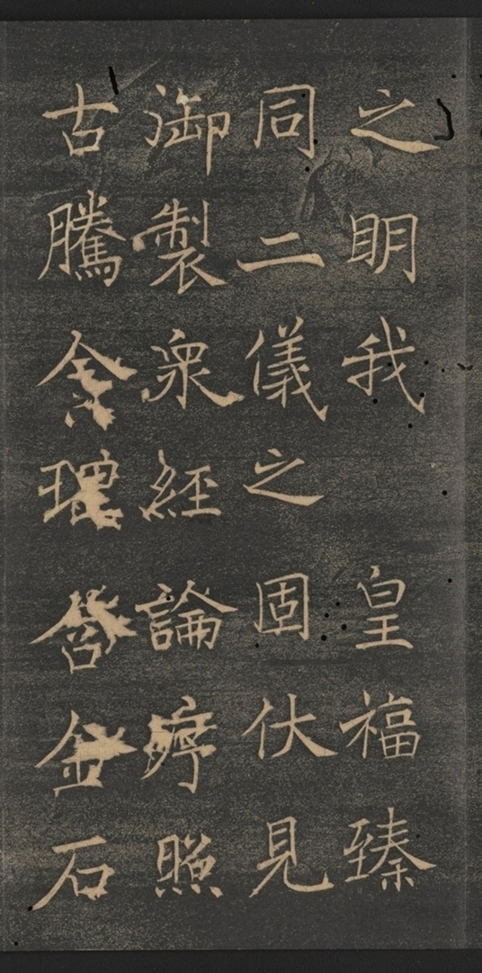 之明我皇福臻
同二儀之固伏見
御製衆經論序照
古騰今理含金石